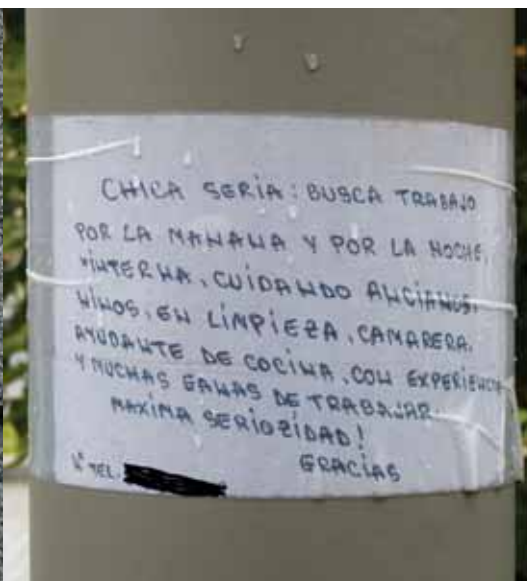 CHICA SERIA: BUSCA TRABAJO
POR LA MAÑANA Y POR LA NOCHE,
INTERNA, CUIDANDO ANCIANOS,
NIÑOS, EN LIMPIEZA, CAMARERA.
AYUDANTE DE COCINA, CON EXPERIENCIA
Y MUCHAS GANAS DE TRABAJAR.
MAXIMA SERIOZIDAD!
GRACIAS
Nº TEL.